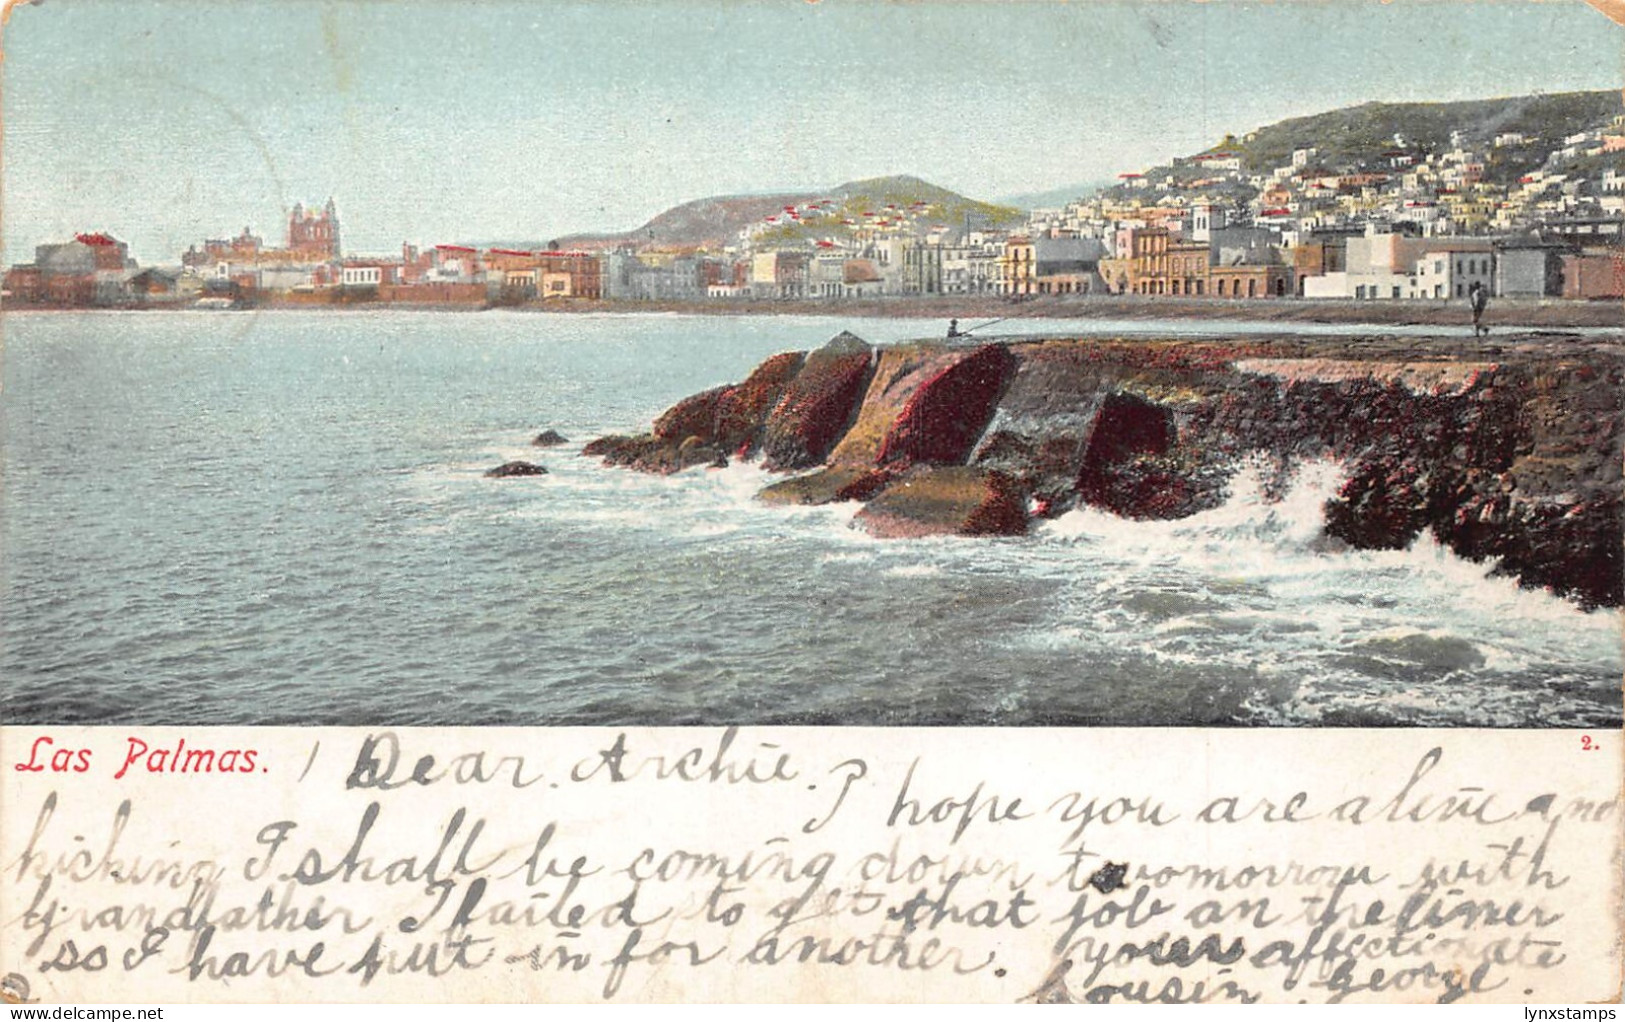 Las Palmas. 2.
Dear Archie. I hope you are alive and
kicking I shall be coming down tomorrow with
Grandfather I failed to get that job on the liner
so I have put in for another. yours affectionate
Cousin George.
delcampe.net
lynxstamps